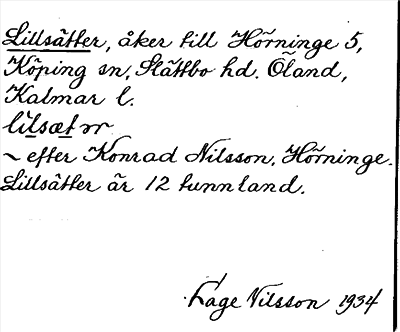 Lillsätter, åker till Hörninge 5,
Köping sn, Slättbo hd. Öland,
Kalmar l.
~ efter Konrad Nilsson, Hörninge.
Lillsätter är 12 tunnland.
Lage Nilsson 1934